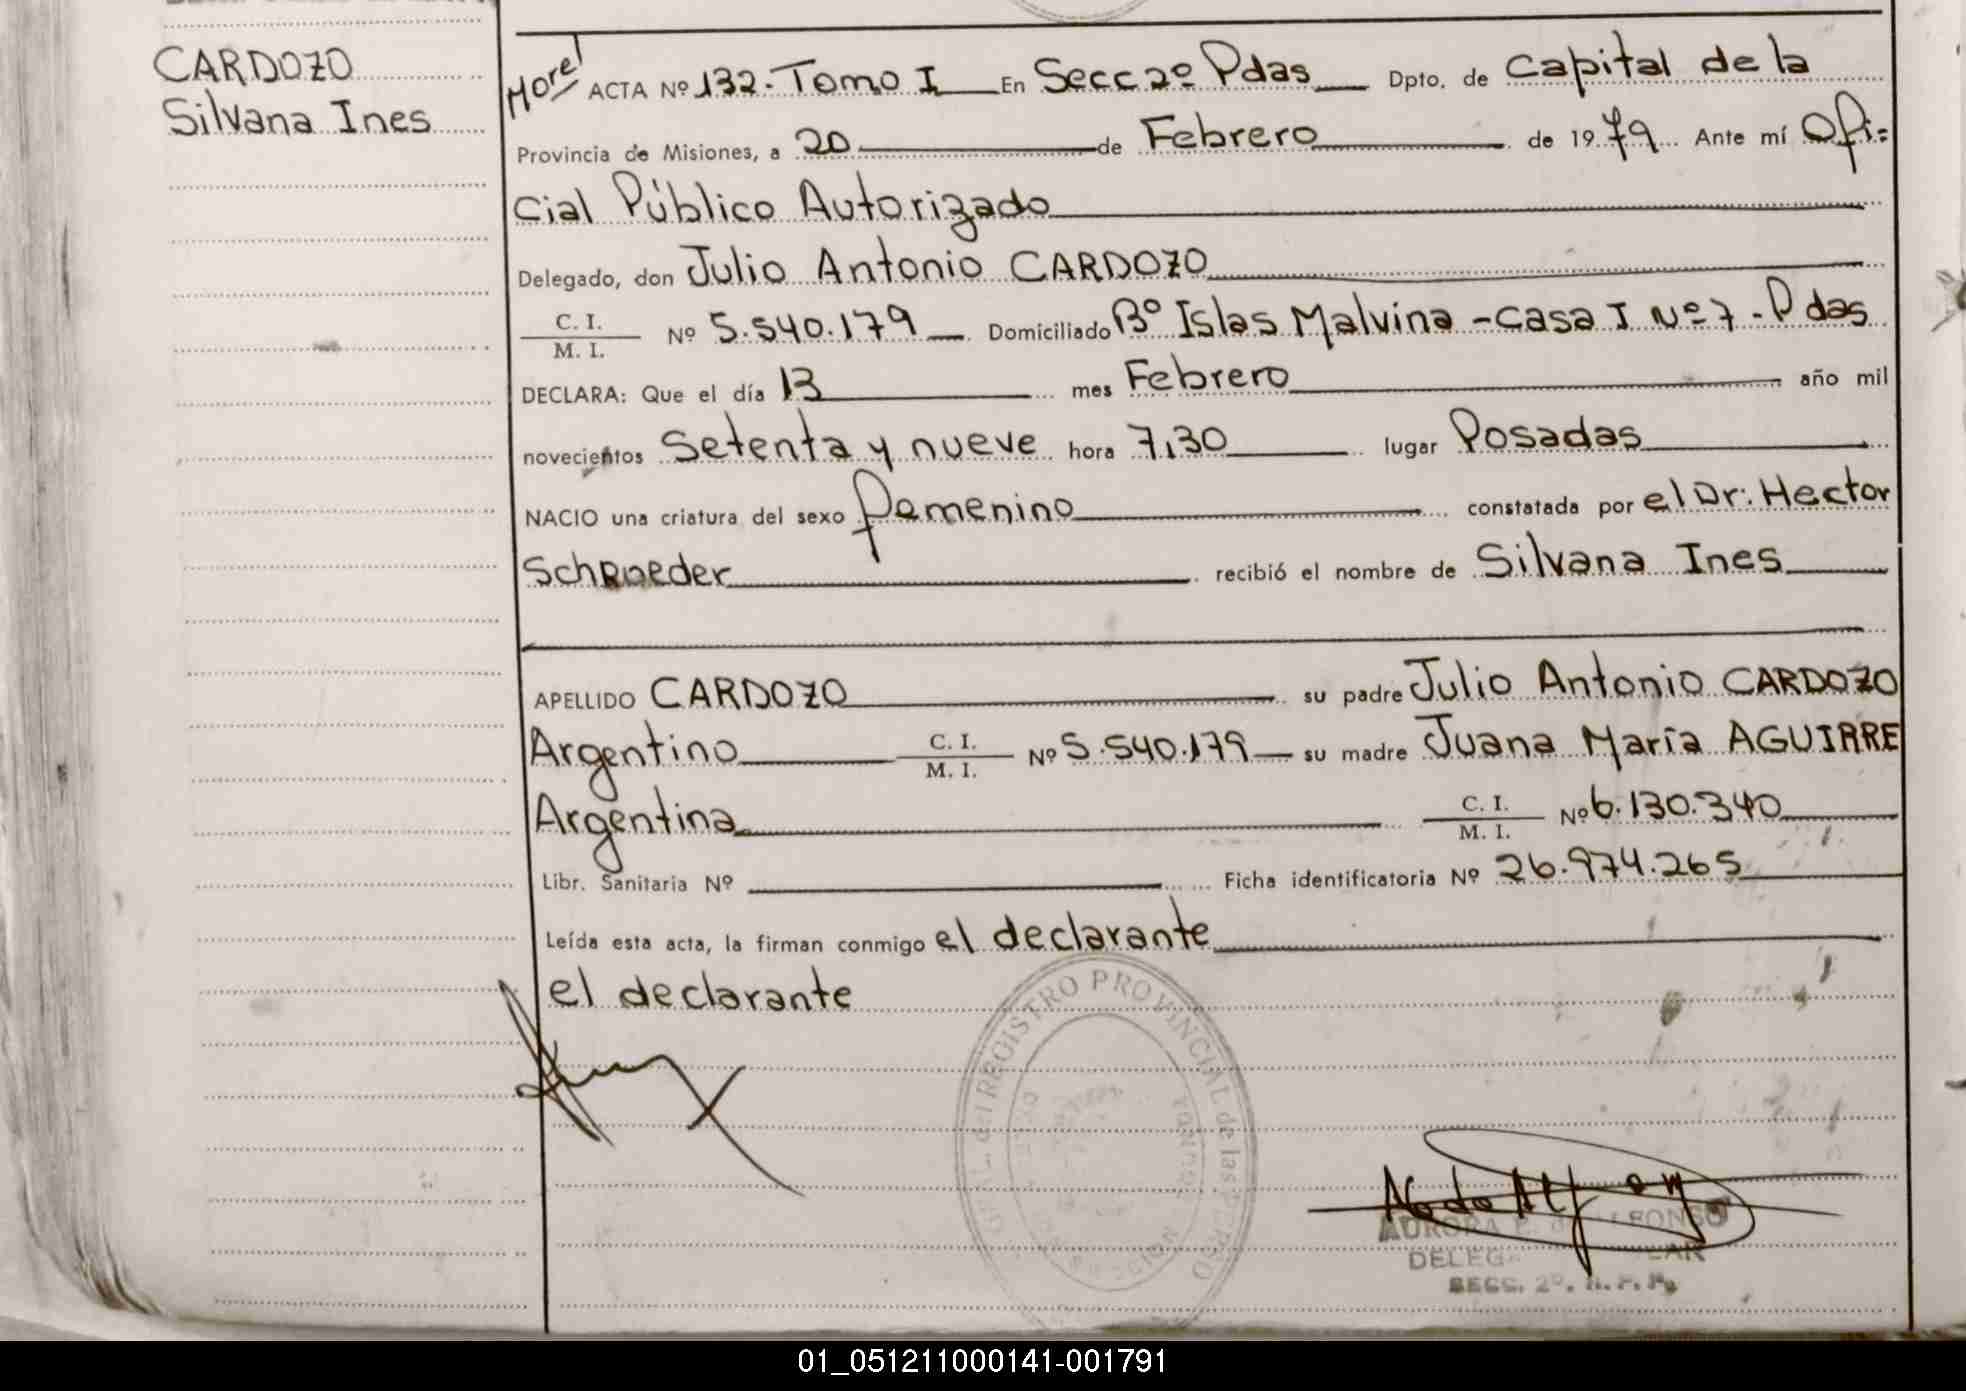 CARDOZO
Silvana Ines
Morel ACTA Nº 132. Tomo I En Secc 2º Pdas Dpto. de Capital de la
Provincia de Misiones, a 20 de Febrero de 1979 Ante mí Ofi=
cial Público Autorizado
Delegado, don Julio Antonio CARDOZO
C. I.
M. I. Nº 5.540.179 Domiciliado Bº Islas Malvina - casa I Nº 7 - Pdas
DECLARA: Que el día 13 mes Febrero año mil
novecientos Setenta y nueve hora 7,30 lugar Posadas
NACIO una criatura del sexo femenino constatada por el Dr: Hector
Schroeder recibió el nombre de Silvana Ines
APELLIDO CARDOZO su padre Julio Antonio CARDOZO
Argentino C. I. M. I. Nº 5.540.179 su madre Juana María AGUIRRE
Argentina C. I. M. I. Nº 6.130.340
Libr. Sanitaria Nº Ficha identificatoria Nº 26.974.265
Leída esta acta, la firman conmigo el declarante
el declarante
GRAL. del REGISTRO PROVINCIAL de las PERSO
AURORA ALFONSO
SECC. 2º.
01_051211000141-001791